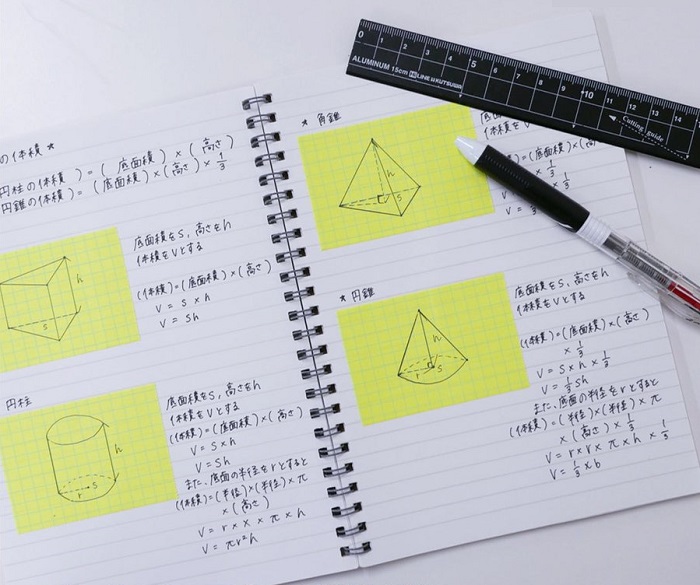 の体積 ★
円柱の体積)=(底面積)×(高さ)
円錐の体積)=(底面積)×(高さ)×1/3
h
s
底面積をS,高さをh
体積をVとする
(体積)=(底面積)×(高さ)
V = S × h
V = Sh
円柱
h
r
s
底面積をS,高さをh
体積をVとする
(体積)=(底面積)×(高さ)
V = S × h
V = Sh
また、底面の半径をrとすると
(体積)=(半径)×(半径)×π
×(高さ)
V = r × x × π × h
V = πr²h
★ 角錐
h
s
体積をV
=(底面積)×(高
× 1/3
V =
★ 円錐
h
r
s
底面積をS,高さをh
体積をVとする
(体積)=(底面積)×(高さ)
× 1/3
V = S × h × 1/3
V = 1/3 Sh
また、底面の半径をrとすると
(体積)=(半径)×(半径)×π
×(高さ)× 1/3
V = r × r × π × h × 1/3
V = 1/3 × b
0 1 2 3 4 5 6 7 8 9 10 11 12 13 14
ALUMINUM 15cm LINE KUTSUWA
Cutting guide